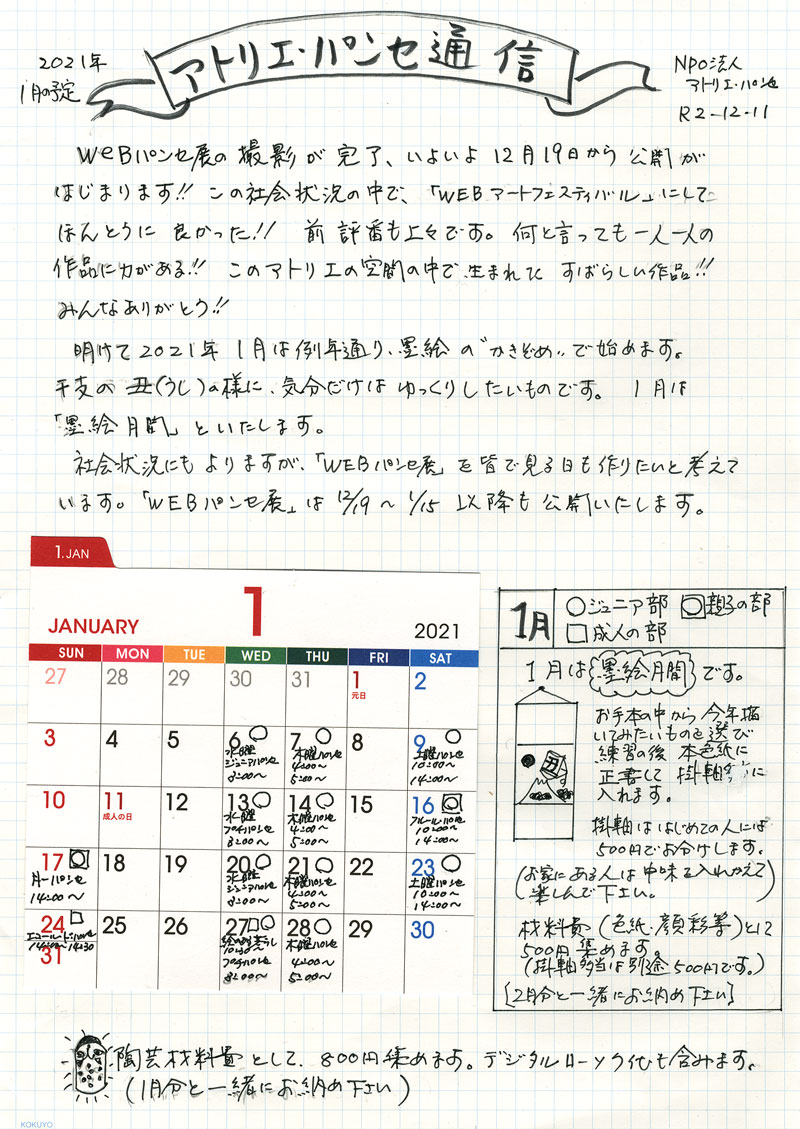 アトリエ・パンセ通信
2021年
1月の予定
NPO法人
アトリエ・パンセ
R2-12-11
WEBパンセ展の撮影が完了、いよいよ12月19日から公開が
はじまります!! この社会状況の中で、「WEBアートフェスティバル」にして
ほんとうに良かった!! 前評番も上々です。何と言っても一人一人の
作品に力がある!! このアトリエの空間の中で生まれた すばらしい作品!!
みんなありがとう!!
明けて2021年 1月は例年通り、墨絵の〝かきぞめ〟で始めます。
干支の丑(うし)の様に、気分だけはゆっくりしたいものです。 1月は
「墨絵月間」といたします。
社会状況にもよりますが、「WEBパンセ展」を皆で見る日も作りたいと考えて
います。「WEBパンセ展」は12/19〜1/15以降も公開いたします。
1.JAN
1
JANUARY
2021
SUN MON TUE WED THU FRI SAT
27 28 29 30 31 1 2
元日
3 4 5 6○ 7○ 8 9○
水曜 木曜パンセ 土曜パンセ
ジュニアパンセ 4:00〜 10:00〜
3:00〜 5:00〜 14:00〜
10 11 12 13○ 14○ 15 16
成人の日 水曜 木曜パンセ フルールパンセ
プチパンセ 4:00〜 10:00〜
3:00〜 5:00〜 14:00〜
17 18 19 20○ 21○ 22 23○
パンセ 水曜 木曜パンセ 土曜パンセ
14:00〜 ジュニアパンセ 4:00〜 10:00〜
3:00〜 5:00〜 14:00〜
24□ 25 26 27□○ 28○ 29 30
エコール・ド・パンセ 木曜パンセ
14:00〜 10:30〜 4:00〜
31 プチパンセ 5:00〜
3:00〜
1月
○ジュニア部 親子の部
□成人の部
1月は墨絵月間です。
お手本の中から今年描
いてみたいものを選び
練習の後 本色紙に
正書して 掛軸に
入れます。
丑
掛軸ははじめての人には
500円でお分けします。
(お家にある人は中味を入れかえて
楽しんで下さい。)
材料費(色紙・顔彩等)として
500円集めます。
(掛軸は別途500円です。)
[2月分と一緒にお納め下さい]
陶芸材料費として、800円集めます。デジタルローソク代も含みます。
(1月分と一緒にお納め下さい)
KOKUYO